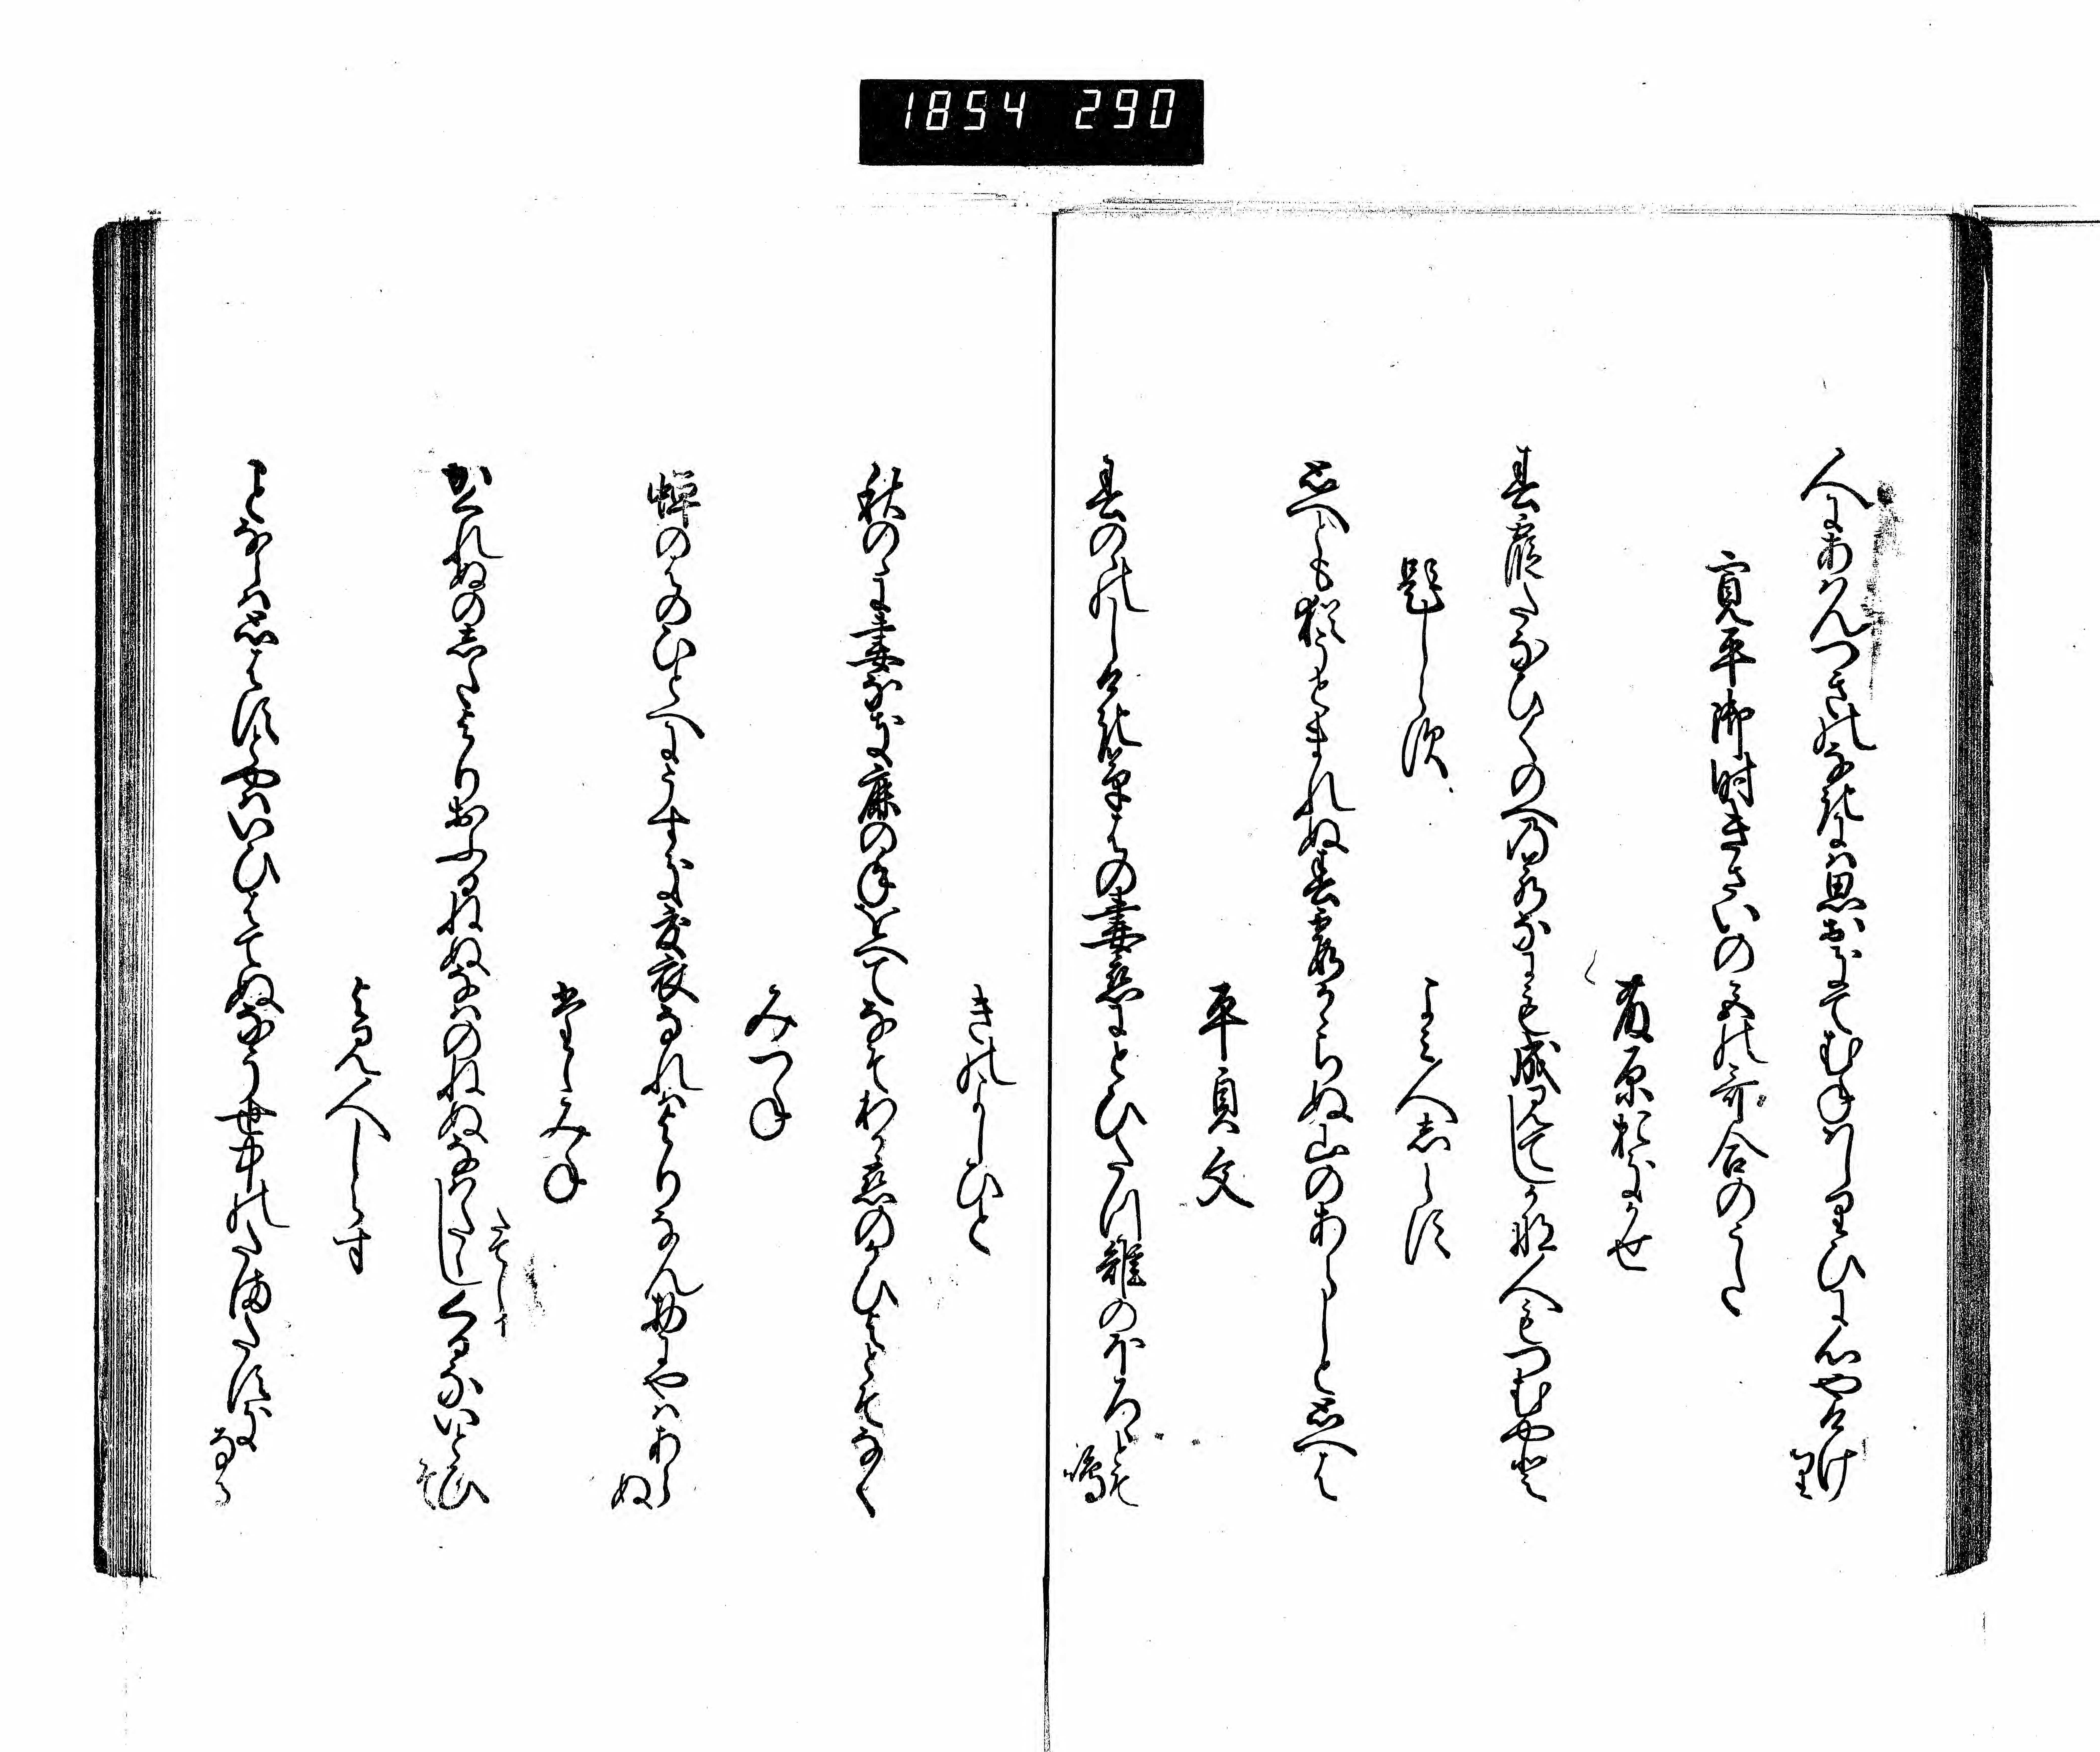 1854 290
人にあはんつきのなきには思おきてむねはしりひに心やけけ
り
寛平御時きさいの宮の哥合のうた
藤原おきかせ
春霞たなひくのへの若なにもなりみてしかな人もつむやと
題しらす
よみ人しらす
思へとも猶うとまれぬ春霞かゝらぬ山のあらしと思へは
平貞文
春のゝしけき草はの妻恋にとひたつ雉のほろゝとそ
鳴
きのよしひと
秋のゝに妻なき鹿の年をへてなそわか恋のかひよとそなく
みつね
蝉のはのひとへにうすき夏衣なれはよりなん物にやはあら
ぬ
たゝみね
かくれぬのしたよりおふるねぬなはのねぬなはたゝしくるないとひ
そ
たてし
よみ人しらす
ことならは思はすとやはいひはてぬなそ世中のたまたすき
なる